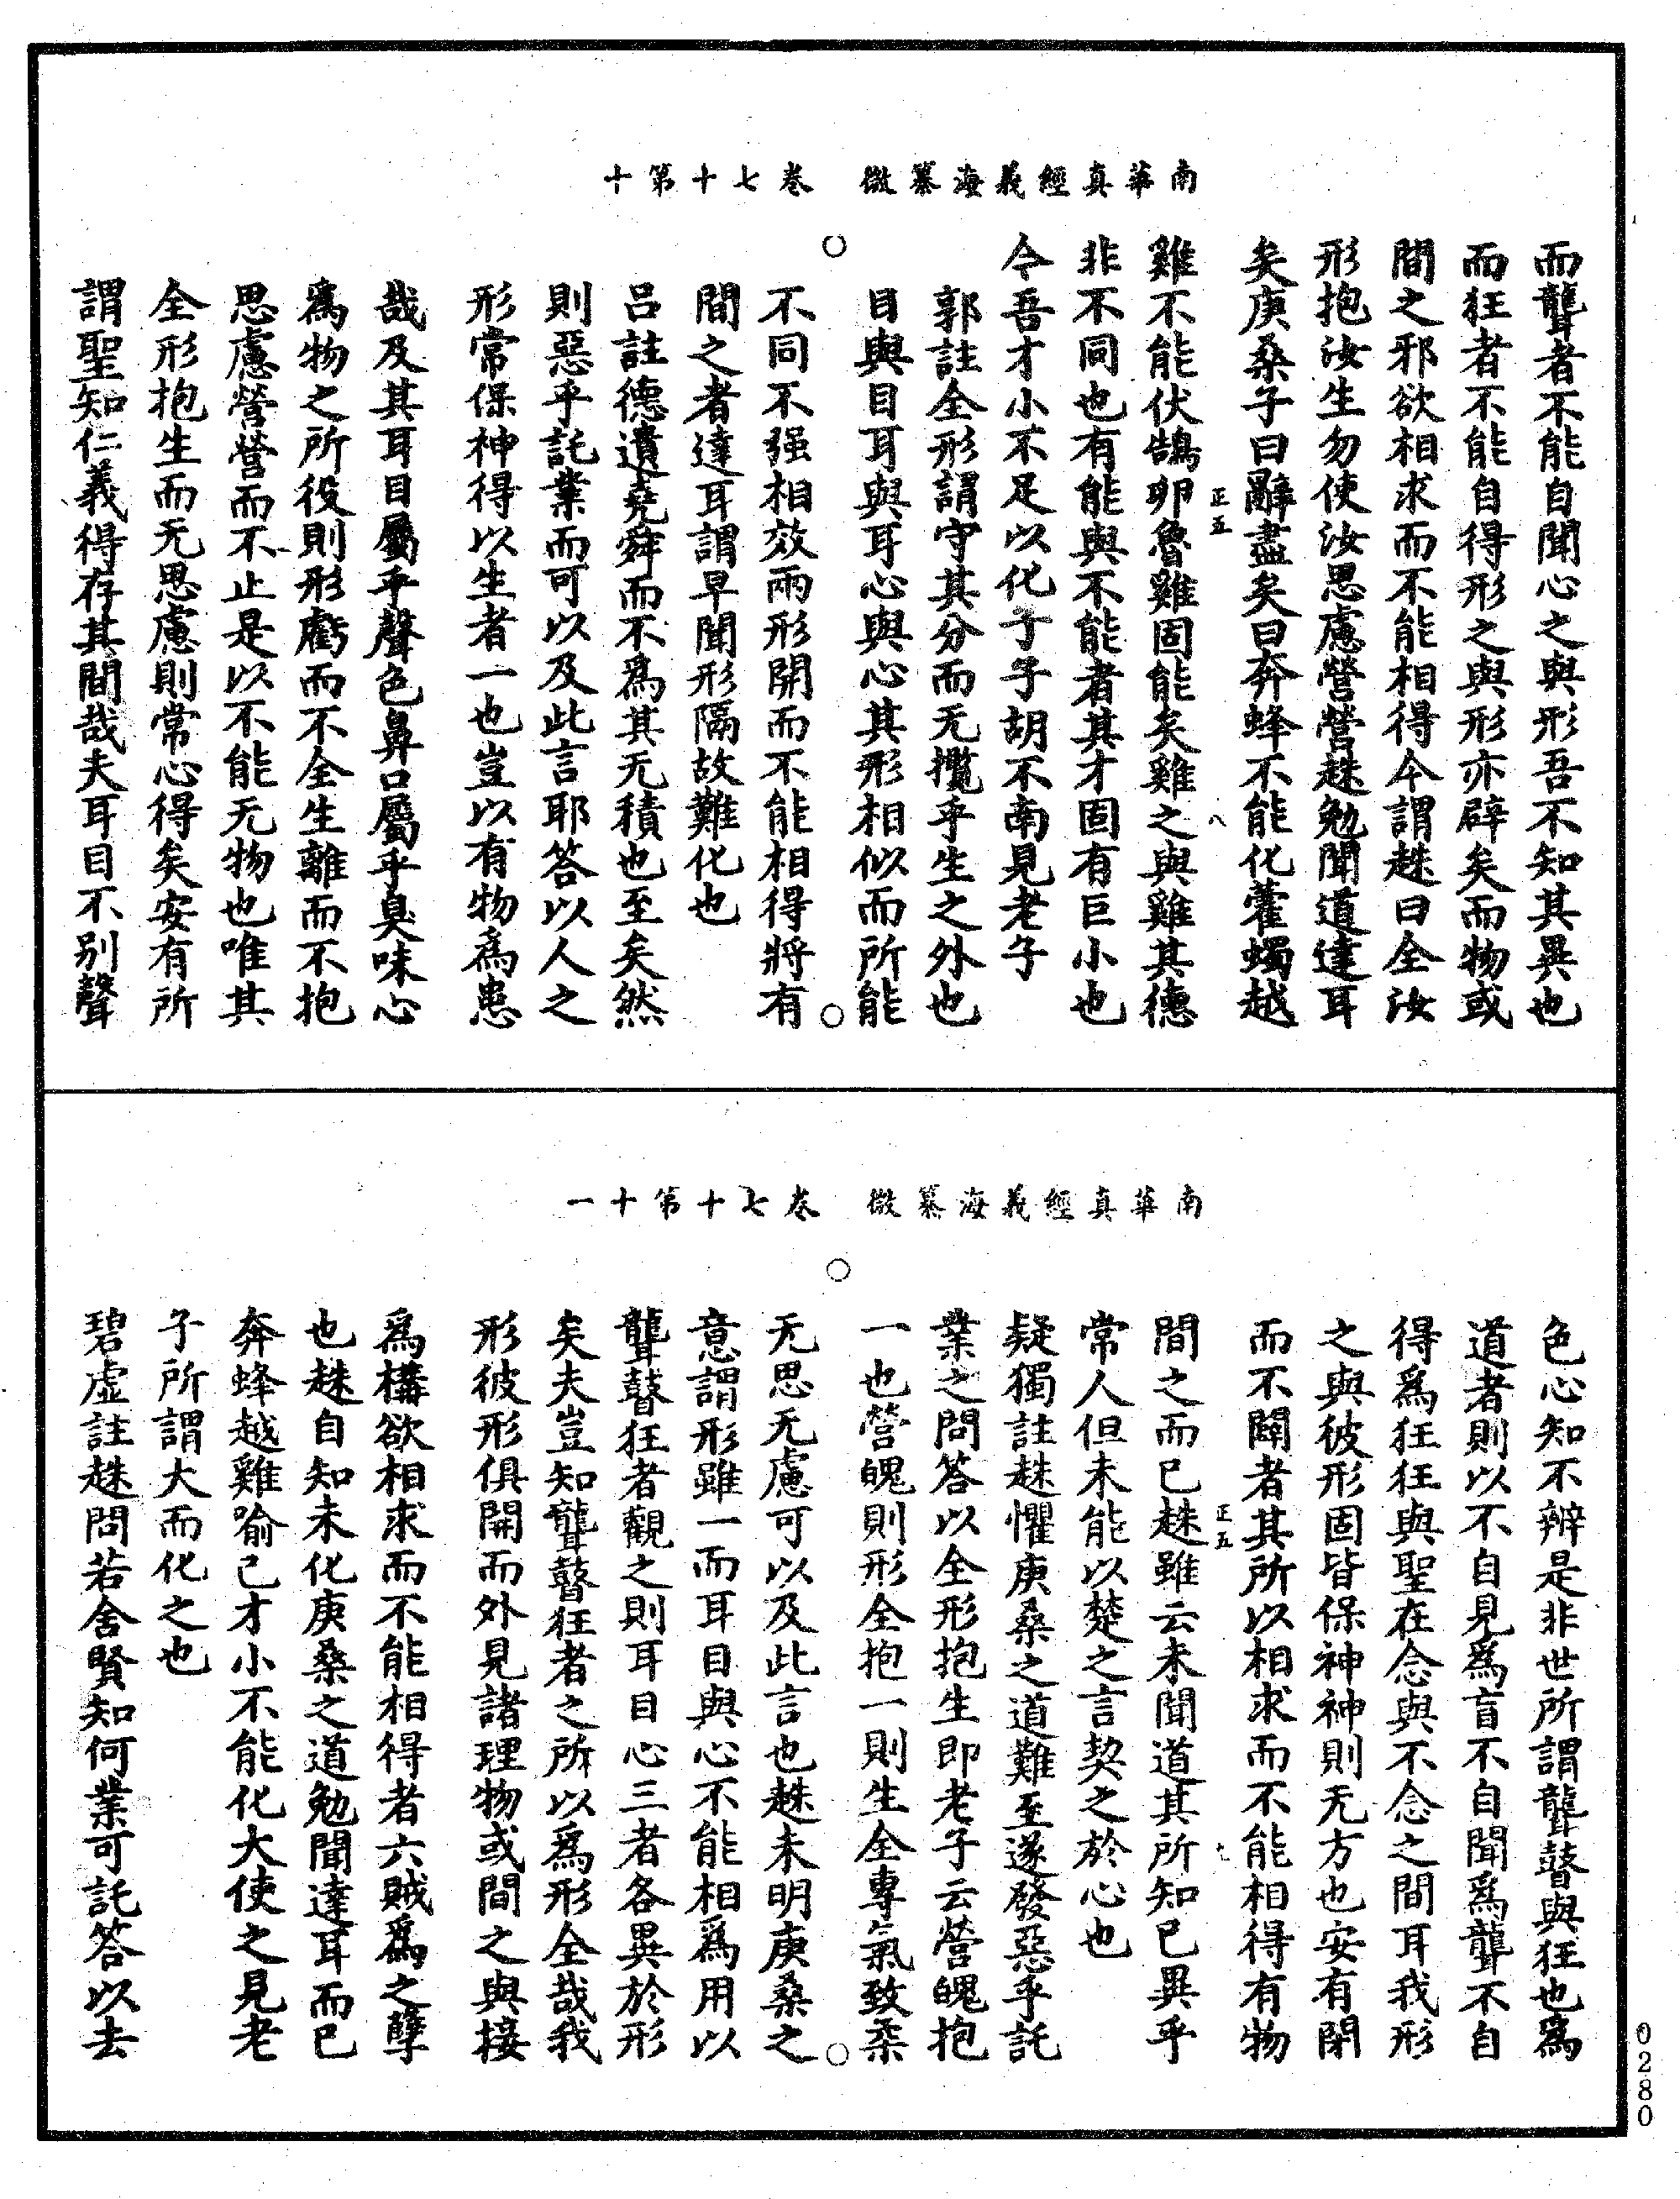 南華真經義海纂微　卷七十第十
而聾者不能自聞心之與形吾不知其異也
而狂者不能自得形之與形亦辟矣而物或
間之邪欲相求而不能相得今謂趎曰全汝
形抱汝生勿使汝思慮營營趎勉聞道達耳
矣庚桑子曰辭盡矣曰奔蜂不能化藿蠋越
正五　八
雞不能伏鵠卵魯雞固能矣雞之與雞其德
非不同也有能與不能者其才固有巨小也
今吾才小不足以化子子胡不南見老子
郭註全形謂守其分而无攬乎生之外也
目與目耳與耳心與心其形相似而所能
不同不强相效兩形開而不能相得將有
間之者達耳謂早聞形隔故難化也
呂註德遺堯舜而不爲其无積也至矣然
則惡乎託業而可以及此言耶答以人之
形常保神得以生者一也豈以有物爲患
哉及其耳目屬乎聲色鼻口屬乎臭味心
爲物之所役則形虧而不全生離而不抱
思慮營營而不止是以不能无物也唯其
全形抱生而无思慮則常心得矣安有所
謂聖知仁義得存其間哉夫耳目不别聲
南華真經義海纂微　卷七十第十一
色心知不辯是非世所謂聾瞽與狂也爲
道者則以不自見爲盲不自聞爲聾不自
得爲狂狂與聖在念與不念之間耳我形
之與彼形固皆保神神則无方也安有閉
而不闢者其所以相求而不能相得有物
正五　九
間之而已趎雖云未聞道其所知已異乎
常人但未能以楚之言契之於心也
疑獨註趎懼庚桑之道難至遂發惡乎託
業之問答以全形抱生即老子云營魄抱
一也營魄則形全抱一則生全專氣致柔
无思无慮可以及此言也趎未明庚桑之
意謂形雖一而耳目與心不能相爲用以
聾瞽狂者觀之則耳目心三者各異於形
矣夫豈知聾瞽狂者之所以爲形全哉我
形彼形俱開而外見諸理物或間之與接
爲構欲相求而不能相得者六賊爲之孽
也趎自知未化庚桑之道勉聞達耳而已
奔蜂越雞喻己才小不能化大使之見老
子所謂大而化之也
碧虛註趎問若舍賢知何業可託答以去
0280